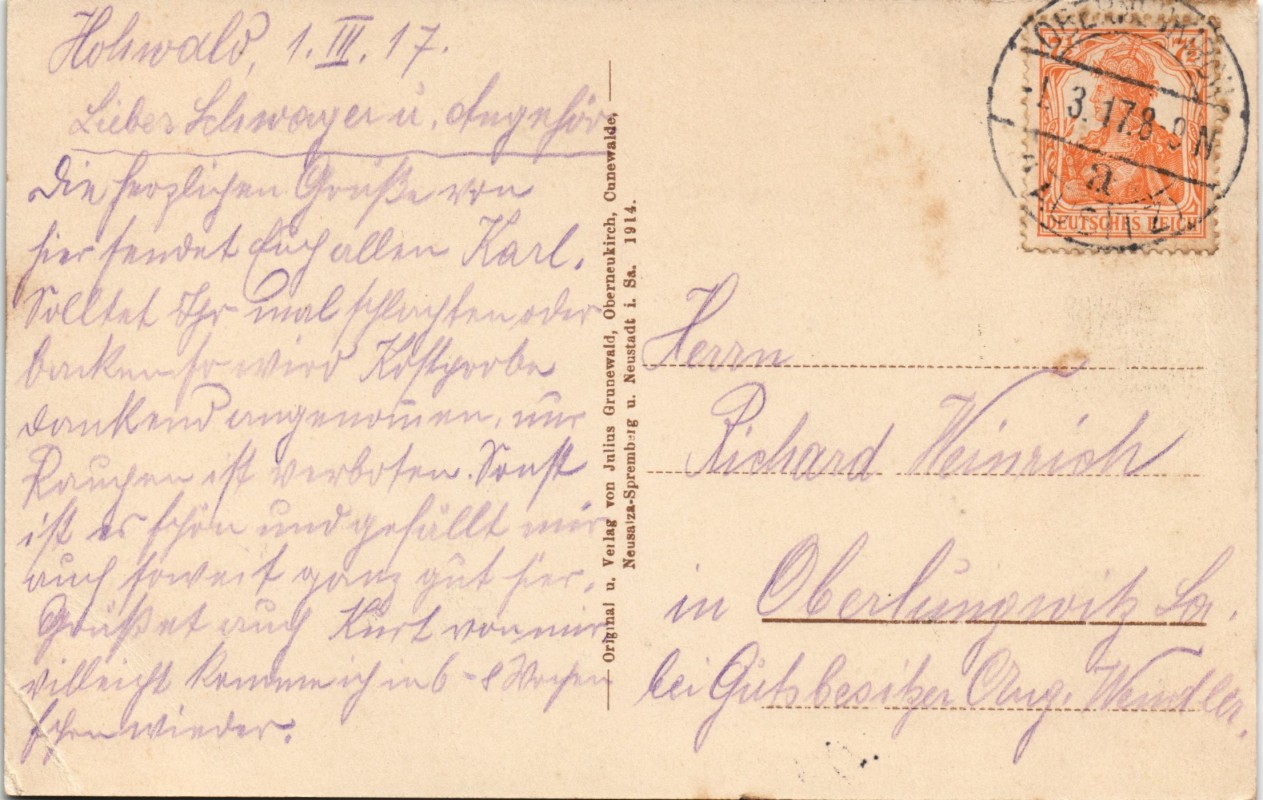 Hohwald, 1. III. 17.
Lieber Schwager u. Angehör
die herzlichen Grüße von
hier sendet Euch allen Karl.
Solltet Ihr mal schlachten oder
backen so wird Kostprobe
dankend angenommen, nur
Rauchen ist verboten. Sonst
ist es schön und gefällt mir
auch soweit ganz gut hier.
Grüßet auch Kurt von mir
villeicht komme ich in 6-8 Wochen
schon wieder.
Original u. Verlag von Julius Grunewald, Oberneukirch, Cunewalde,
Neusalza-Spremberg u. Neustadt i. Sa. 1914.
7½ 7½
DEUTSCHES REICH
1. 3. 17. 8-9 N
a
Herrn
Richard Weinrich
in Oberlungwitz Sa.
bei Gutsbesitzer Aug. Wendler.